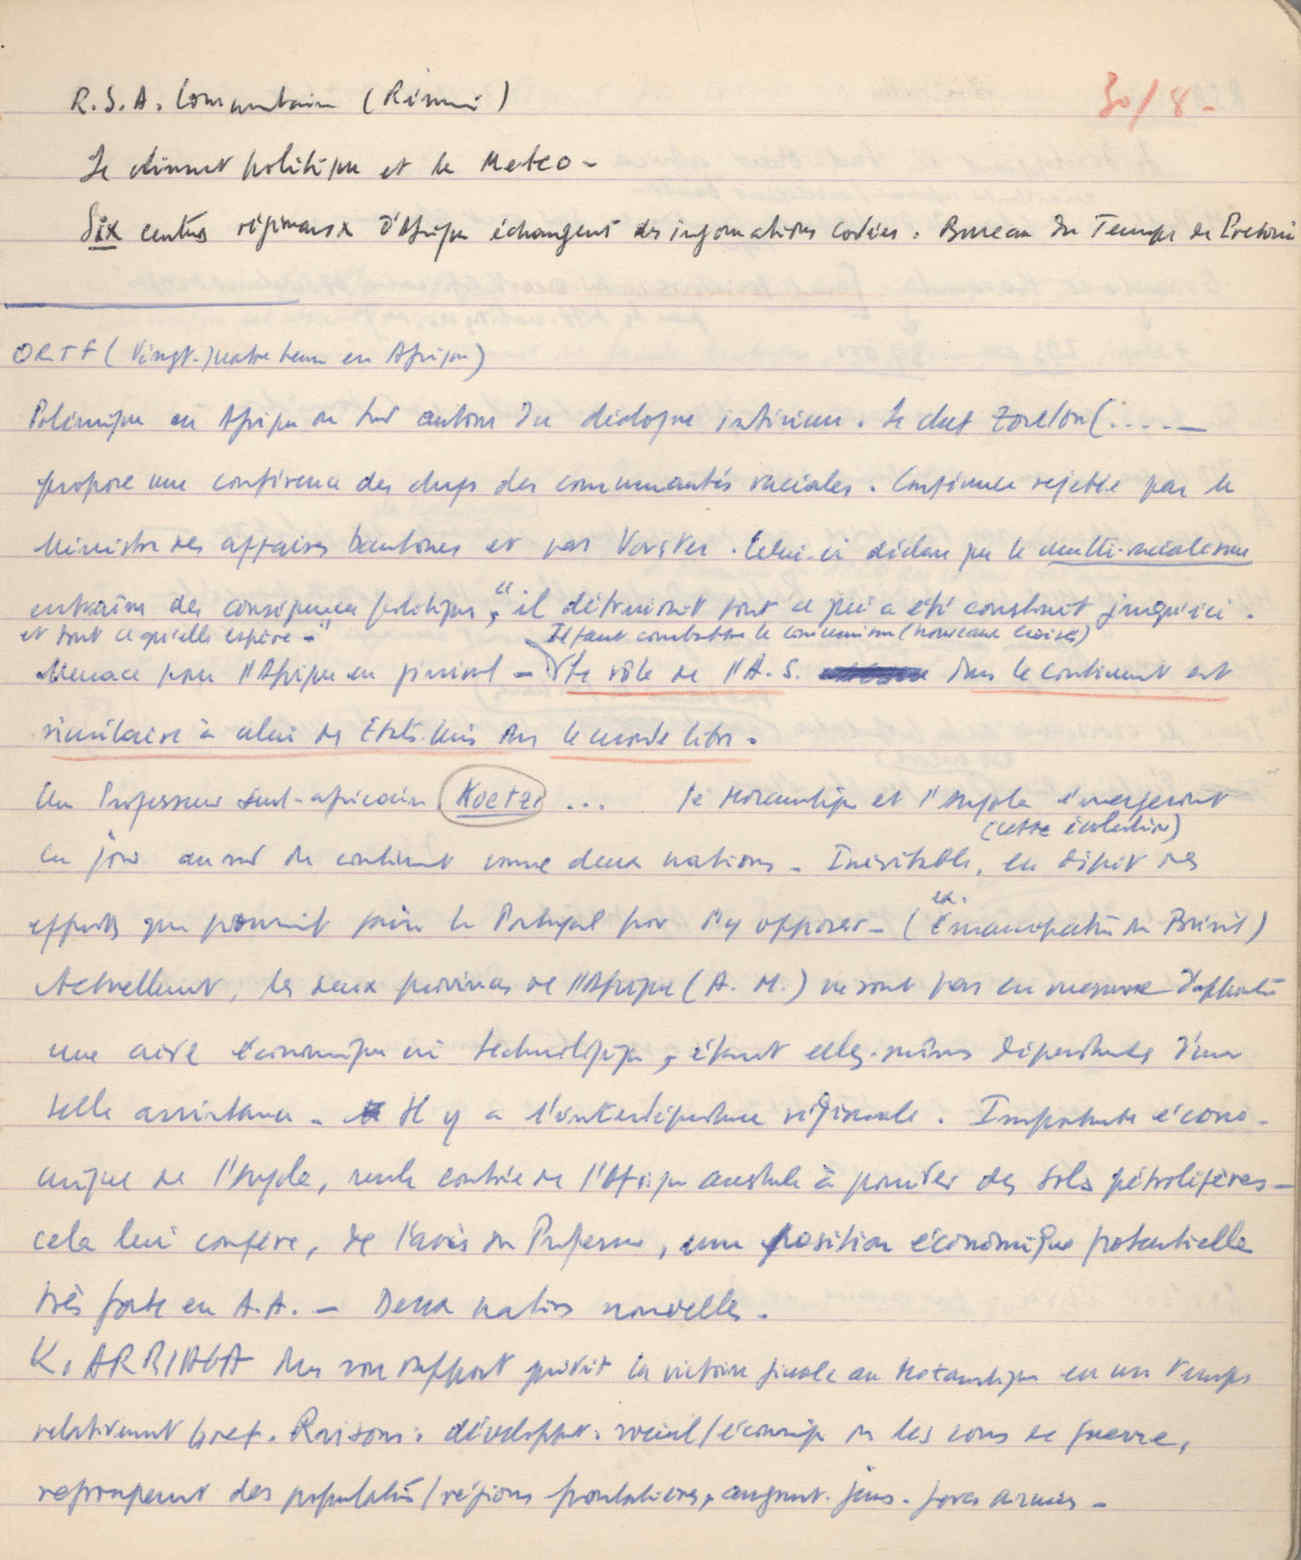 R.S.A. Commentaire (Résumé) 30/8-
Le climat politique et la Meteo -
Six centres régionaux d'Afrique échangent des informations codées. Bureau du Temps de Pretoria
ORTF (Vingt-quatre heures en Afrique)
Polémique en Afrique du Sud autour du dialogue intérieur. Le chef (.....-
propose une conférence des chefs des communautés raciales. Conférence rejetée par le
Ministre des affaires bantoues et par Vorster. Celui-ci déclare que le multi-racialisme
entraîne des conséquences politiques, "il détruirait tout ce qui a été construit jusqu'ici.
et tout ce qu'elle espère -" Il faut combattre le communisme (nouveaux croisés)
Menace pour l'Afrique en général - Le rôle de l'A.S. dans le continent est
similaire à celui des Etats-Unis dans le monde libre.
Un Professeur sud-africain Koetze ... le Mozambique et l'Angola émergeront
(cette évolution)
un jour au sud du continent comme deux nations - Inévitable, en dépit des
efforts que pourrait faire le Portugal pour s'y opposer - (ex. Emancipation du Brésil)
Actuellement, les deux provinces de l'Afrique (A. M.) ne sont pas en mesure d'apporter
une aide économique ni technologique, étant elles-mêmes dépendantes d'une
telle assistance - Il y a l'interdépendance régionale. Importance écono-
mique de l'Angola, seule contrée de l'Afrique australe à posséder des sols pétrolifères -
cela lui confère, de l'avis du Professeur, une position économique potentielle
très forte en A.A. - Deux nations nouvelles.
K. ARRIAGA dans son rapport prédit la victoire finale au Mozambique en un temps
relativement bref. Raisons: développt. social/économiq ds les zones de guerre,
regroupement des populations/régions frontalières, augment. forces armées -